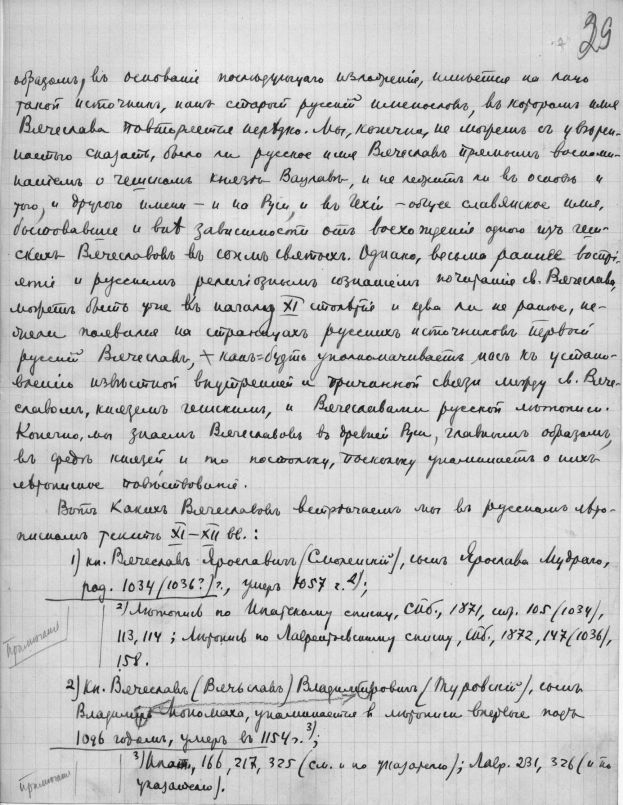 29
образомъ, въ основаніе последующаго изложенія, имѣется на лицо
такой источникъ, какъ старый русскій именословъ, въ которомъ имя
Вячеслава повторяется нерѣдко. Мы, конечно, не можемъ съ увѣрен-
ностью сказать, было ли русское имя Вячеславъ прямымъ воспоми-
наніемъ о чешскомъ князѣ Вацлавѣ, и не лежитъ ли въ основѣ и
того, и другого имени – и на Руси, и въ Чехіи – общее славянское имя,
бытовавшее и внѣ зависимости отъ восхожденія одного изъ чеш-
скихъ Вячеславовъ въ сонмъ святыхъ. Однако, весьма раннее воспрі-
ятіе и русскимъ религіознымъ сознаніемъ почитанія св. Вячеслава,
можетъ быть уже въ началѣ XI столѣтія и едва ли не ранѣе, не-
жели появился на страницахъ русскихъ источниковъ первый
русскій Вячеславъ, какъ-будто уполномачиваетъ насъ къ устано-
вленію извѣстной внутренней и причинной связи между св. Вяче-
славомъ, княземъ чешскимъ, и Вячеславами русской лѣтописи.
Конечно, мы знаемъ Вячеславовъ въ древней Руси, главнымъ образомъ,
въ средѣ князей и то постольку, поскольку упоминаетъ о нихъ
лѣтописное повѣствованіе.
Вотъ какихъ Вячеславовъ встрѣчаемъ мы въ русскомъ лѣто-
писномъ текстѣ XI–XII вв.:
1) кн. Вячеславъ Ярославичъ (Смоленскій), сынъ Ярослава Мудраго,
род. 1034 (1036?) г., умеръ 1057 г. 2);
2) Лѣтопись по Ипатскому списку, Спб., 1871, стр. 105 (1034),
113, 114; Лѣтопись по Лаврентьевскому списку, Спб., 1872, 147 (1036),
158.
Примѣчаніе
2) кн. Вячеславъ (Вячьславъ) Владимировичъ (Туровскій), сынъ
Владиміра Мономаха, упоминается въ лѣтописи впервые подъ
1096 годомъ, умеръ въ 1154 г. 3);
3) Ипат., 166, 217, 325 (см. и по указателю); Лавр. 231, 326 (и по
указателю).
Примѣчаніе